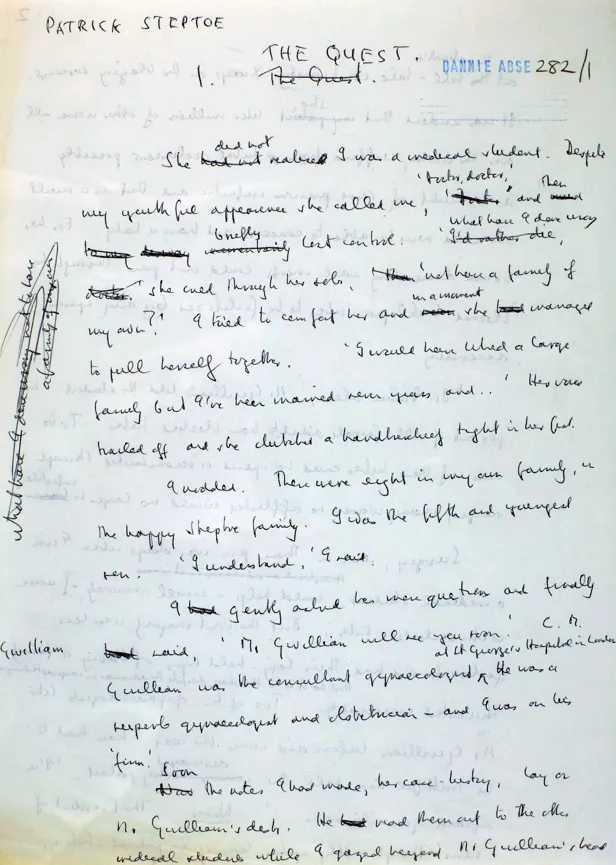 PATRICK STEPTOE
THE QUEST.
1. The Quest.
DANNIE ABSE 282/1
did not
She had not realised I was a medical student. Despite
'Doctor, doctor,' then
my youthful appearance she called me, 'Doctor' and
what have I done wrong
briefly
to my momentarily lost control. 'I'd rather die,
doctor.' she cried through her sobs, 'not have a family of
in a moment
my own?' I tried to comfort her and soon she had managed
to pull herself together. 'I would have liked a large
family but I've been married seven years and..' Her voice
trailed off and she clutched a handkerchief tight in her fist.
I nodded. There were eight in my own family, in
the happy Steptoe family. I was the fifth and youngest
son. 'I understand,' I said.
I had gently asked her more questions and finally
had said, 'Mr Gwillian will see you soon.' C. M.
at St George's Hospital in London
Gwillim
Gwilliam was the consultant gynaecologist. He was a
superb gynaecologist and obstetrician – and I was on his
'firm.'
Soon
the notes I had made, her case-history, lay on
Mr. Gwilliam's desk. He had read them out to the other
medical students while I gazed beyond Mr Gwilliam's head
what have I done wrong not to have
a family of my own